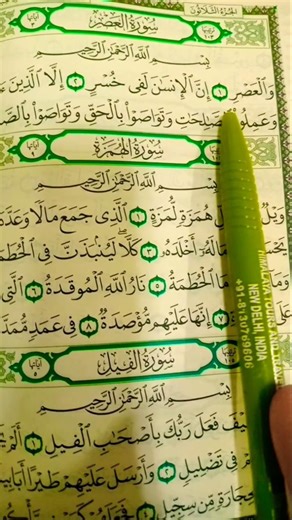 الجزء الثلاثون
سورة العصر
بسم الله الرحمن الرحيم
والعصر ١ إن الإنسان لفي خسر ٢ إلا الذين
وعملوا الصلحت وتواصوا بالحق وتواصوا
سورة الهمزة
بسم الله الرحمن الرحيم
همزة لمزة ١ الذي جمع مالا وعدده
ماله أخلده ٣ كلا لينبذن في
ما الحطمة ٥ نار الله الموقدة ٦ التي
إنها عليهم مؤصدة ٨ في عمد
سورة الفيل
بسم الله الرحمن الرحيم
فعل ربك بأصحب الفيل ١
في تضليل ٢ وأرسل عليهم طيرا
من سجيل
+91-8130769606
NEW DELHI, INDIA